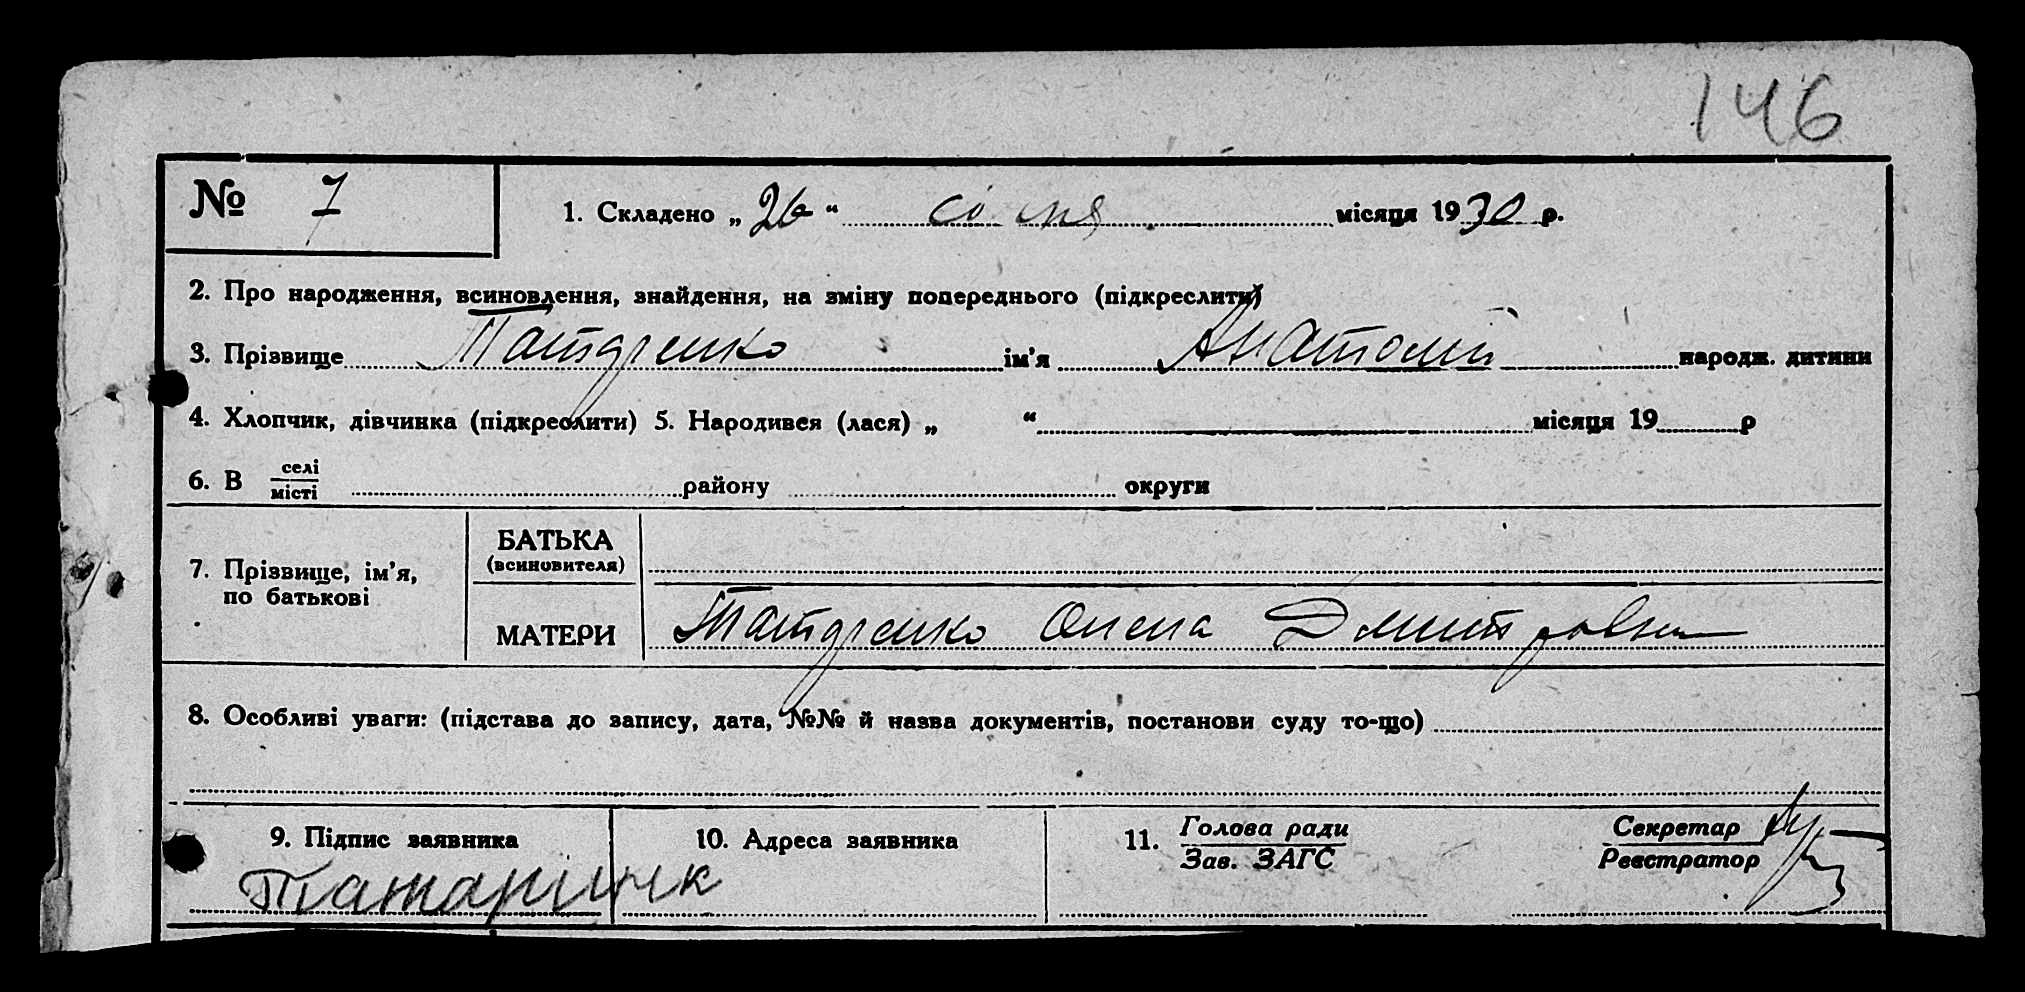 146
№ 7 1. Складено „26“ січня місяця 1930 р.
2. Про народження, всиновлення, знайдення, на зміну попереднього (підкреслити)
3. Прізвище Татаренко ім’я Анатолий народж. дитини
4. Хлопчик, дівчинка (підкреслити) 5. Народився (лася) „ “ місяця 19 р
6. В селі місті району округи
7. Прізвище, ім’я, по батькові
БАТЬКА (всиновителя)
МАТЕРИ Татаренко Олена Дмитровна
8. Особливі уваги: (підстава до запису, дата, №№ й назва документів, постанови суду то-що)
9. Підпис заявника 10. Адреса заявника 11. Голова ради Зав. ЗАГС Секретар Реєстратор